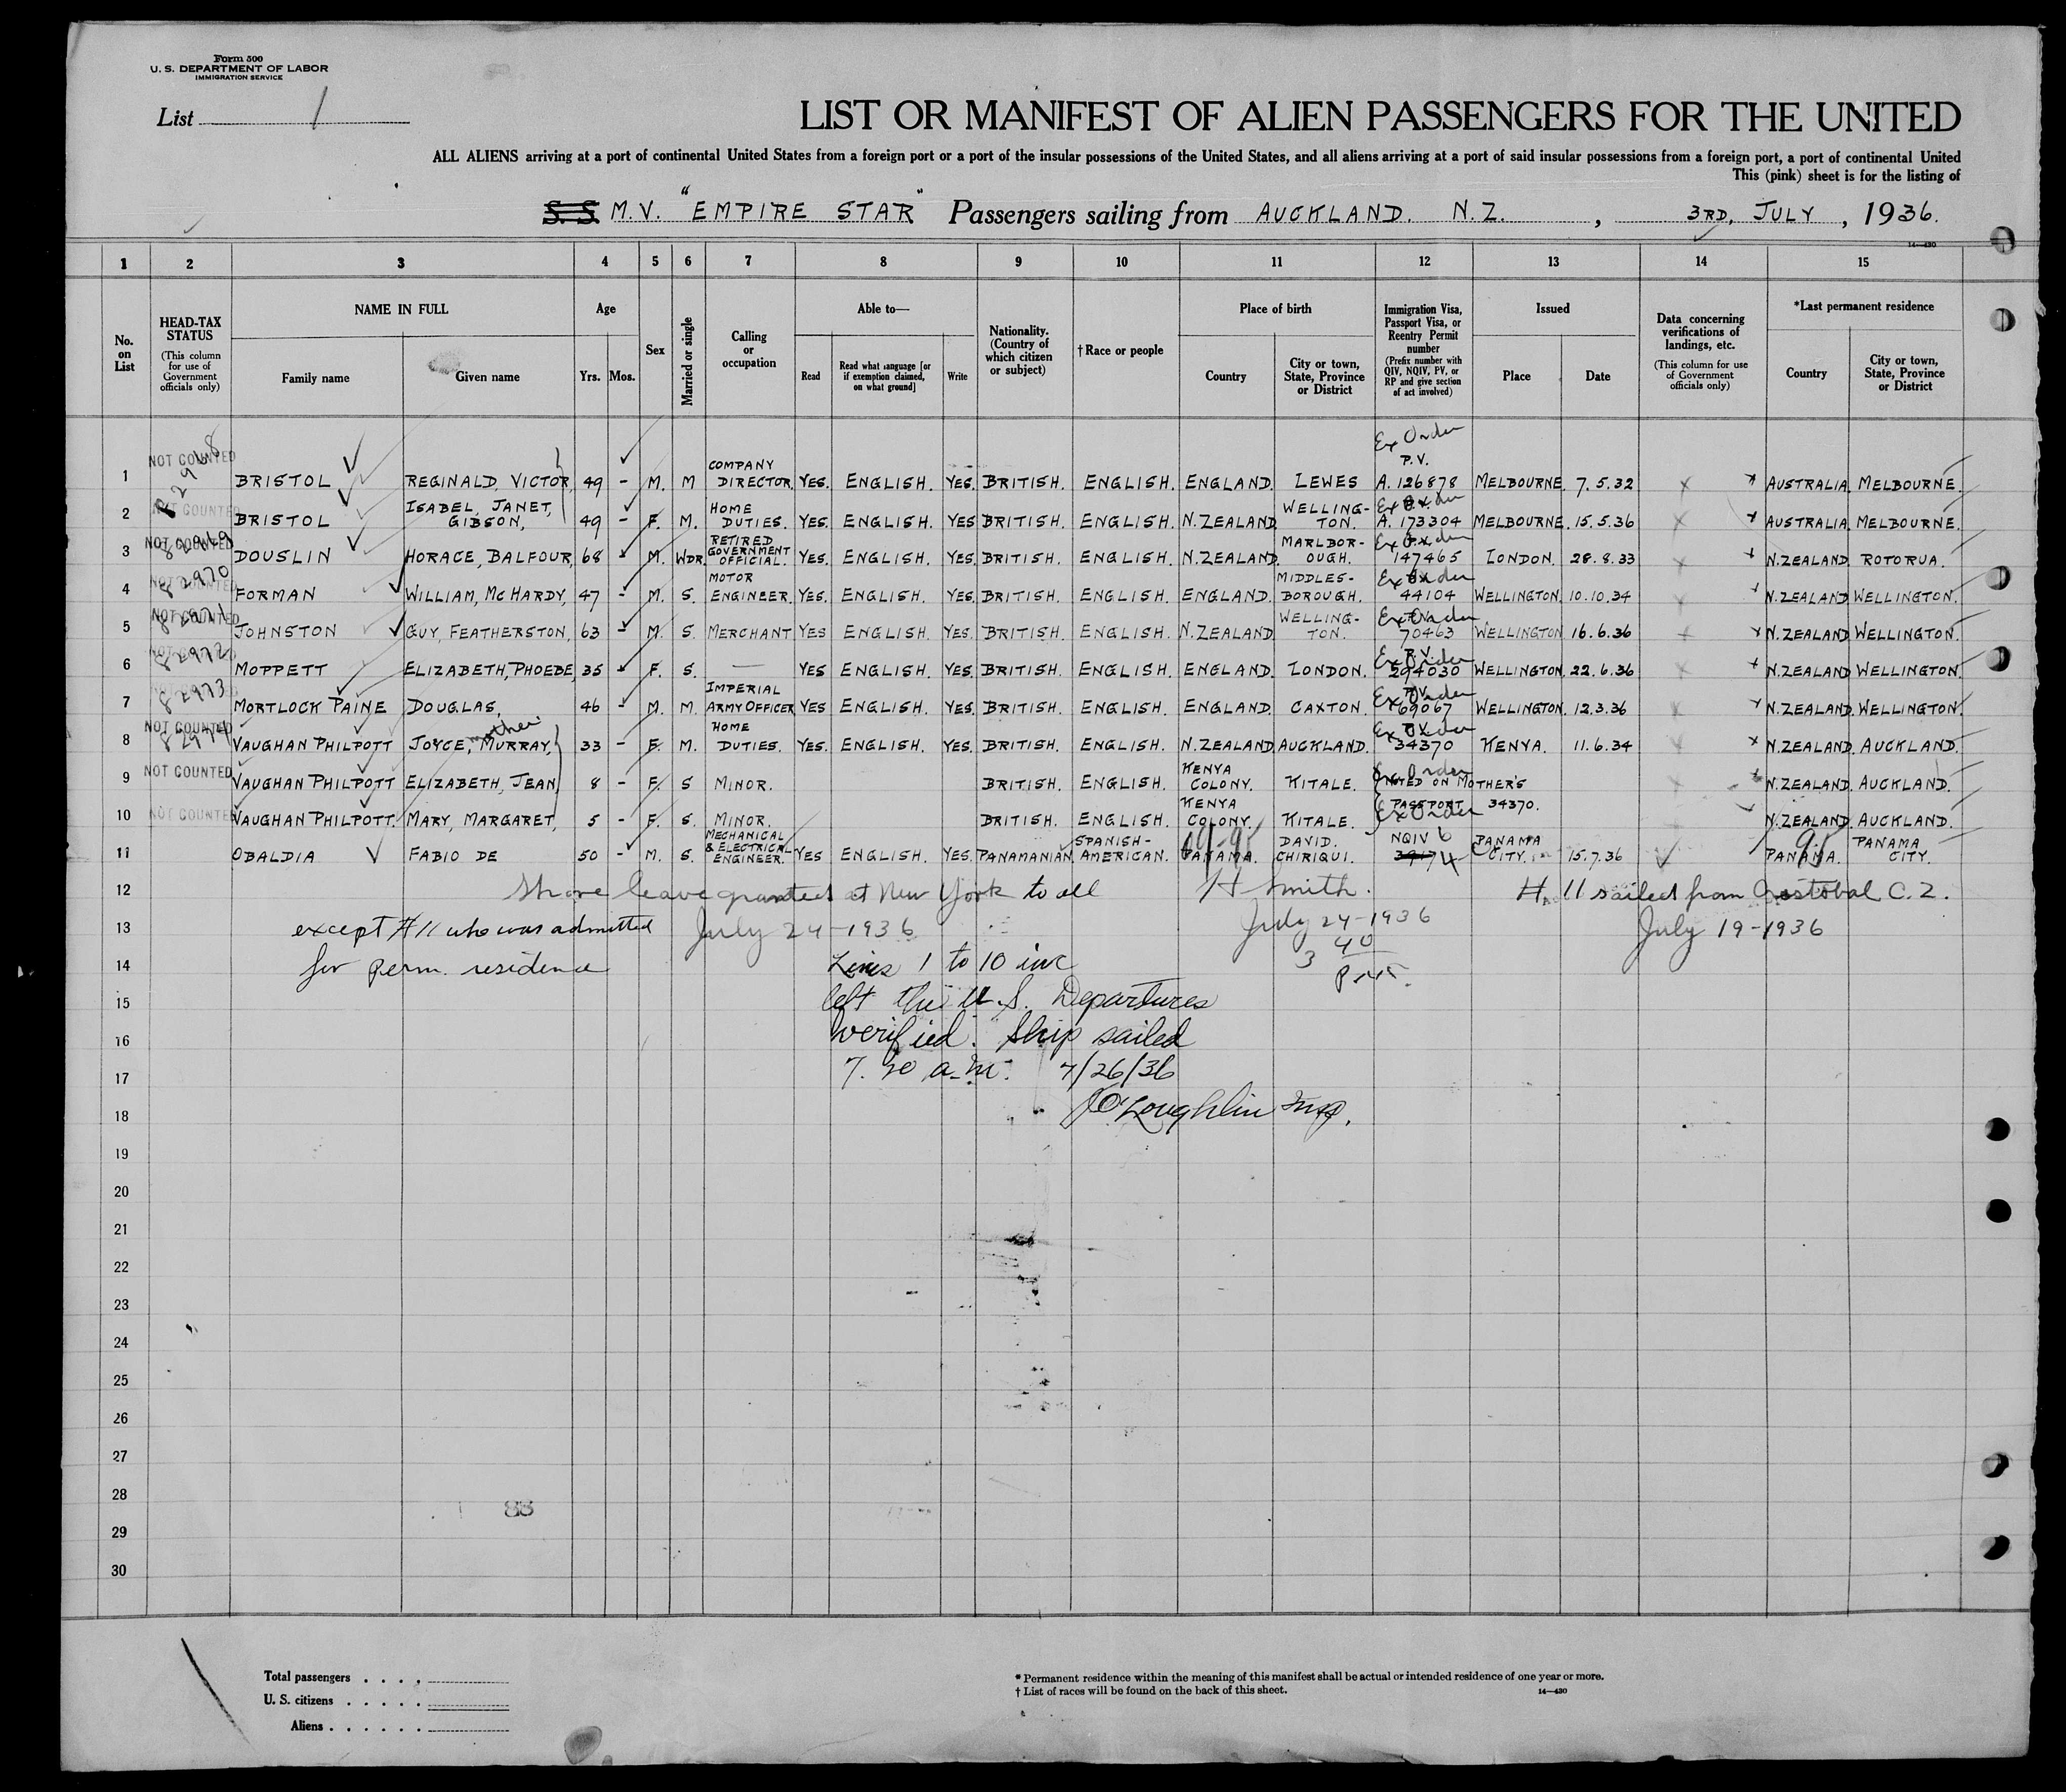 Form 500
U. S. DEPARTMENT OF LABOR
IMMIGRATION SERVICE
List 1
LIST OR MANIFEST OF ALIEN PASSENGERS FOR THE UNITED
ALL ALIENS arriving at a port of continental United States from a foreign port or a port of the insular possessions of the United States, and all aliens arriving at a port of said insular possessions from a foreign port, a port of continental United
This (pink) sheet is for the listing of
S.S. M.V. "EMPIRE STAR" Passengers sailing from AUCKLAND. N.Z. , 3RD, JULY , 1936.
14—430
1 2 3 4 5 6 7 8 9 10 11 12 13 14 15
No. on List
HEAD-TAX STATUS (This column for use of Government officials only)
NAME IN FULL Family name Given name
Age Yrs. Mos.
Sex
Married or single
Calling or occupation
Able to— Read Read what language [or if exemption claimed, on what ground] Write
Nationality. (Country of which citizen or subject)
†Race or people
Place of birth Country City or town, State, Province or District
Immigration Visa, Passport Visa, or Reentry Permit number (Prefix number with QIV, NQIV, PV, or RP and give section of act involved)
Issued Place Date
Data concerning verifications of landings, etc. (This column for use of Government officials only)
*Last permanent residence Country City or town, State, Province or District
1 NOT COUNTED BRISTOL REGINALD, VICTOR, 49 - M. M COMPANY DIRECTOR. YES. ENGLISH. YES. BRITISH. ENGLISH. ENGLAND. LEWES Ex Order P.V. A. 126878 MELBOURNE. 7.5.32 AUSTRALIA. MELBOURNE.
2 NOT COUNTED BRISTOL ISABEL, JANET, GIBSON, 49 - F. M. HOME DUTIES. YES. ENGLISH. YES BRITISH. ENGLISH. N. ZEALAND WELLING-TON. Ex Order A. 173304 MELBOURNE. 15.5.36 AUSTRALIA. MELBOURNE.
3 NOT COUNTED 82969 DOUSLIN HORACE, BALFOUR, 68 - M. WDR. RETIRED GOVERNMENT OFFICIAL. YES. ENGLISH. YES. BRITISH. ENGLISH. N. ZEALAND. MARLBOR-OUGH. Ex Order 147465 LONDON. 28.8.33 N. ZEALAND. ROTORUA.
4 NOT COUNTED 82970 FORMAN WILLIAM, McHARDY, 47 - M. S. MOTOR ENGINEER. YES. ENGLISH. YES. BRITISH. ENGLISH. ENGLAND. MIDDLES-BOROUGH. Ex Order 44104 WELLINGTON. 10.10.34 N. ZEALAND WELLINGTON.
5 NOT COUNTED 82971 JOHNSTON GUY, FEATHERSTON, 63 - M. S. MERCHANT YES ENGLISH. YES. BRITISH. ENGLISH. N. ZEALAND WELLING-TON. Ex Order 70463 WELLINGTON 16.6.36 N. ZEALAND WELLINGTON.
6 NOT COUNTED 82972 MOPPETT ELIZABETH, PHOEBE, 35 - F. S. — YES ENGLISH. YES BRITISH. ENGLISH. ENGLAND. LONDON. P.V. Ex Order 294030 WELLINGTON. 22.6.36 N. ZEALAND. WELLINGTON.
7 82973 MORTLOCK PAINE DOUGLAS, 46 - M. M. IMPERIAL ARMY OFFICER YES ENGLISH. YES. BRITISH. ENGLISH. ENGLAND. CAXTON. P.V. Ex Order 69067 WELLINGTON. 12.3.36 N. ZEALAND. WELLINGTON.
8 NOT COUNTED 82974 VAUGHAN PHILPOTT JOYCE, MURRAY, mother 33 - F. M. HOME DUTIES. YES. ENGLISH. YES. BRITISH. ENGLISH. N. ZEALAND AUCKLAND. Ex Order 34370 KENYA. 11.6.34 N. ZEALAND. AUCKLAND.
9 NOT COUNTED VAUGHAN PHILPOTT ELIZABETH, JEAN, 8 - F. S MINOR. BRITISH. ENGLISH. KENYA COLONY. KITALE. Ex Order NOTED ON MOTHER'S N. ZEALAND. AUCKLAND.
10 NOT COUNTED VAUGHAN PHILPOTT. MARY, MARGARET, 5 - F. S. MINOR. BRITISH. ENGLISH. KENYA COLONY. KITALE. PASSPORT 34370. Ex Order N. ZEALAND. AUCKLAND.
11 OBALDIA FABIO DE 50 - M. S. MECHANICAL & ELECTRICAL ENGINEER. YES ENGLISH. YES. PANAMANIAN. SPANISH-AMERICAN. PANAMA. DAVID. CHIRIQUI. NQIV 6 PANAMA CITY. 15.7.36 PANAMA. PANAMA CITY.
12 Shore leave granted at New York to all H Smith. No. 11 sailed from Cristobal C.Z.
13 except #11 who was admitted July 24-1936 July 24-1936 July 19-1936
14 for perm. residence Lines 1 to 10 inc 3 40
15 left the U.S. Departures
16 verified. Ship sailed
17 7.20 a.m. 7/26/36
18 O'Loughlin Insp.
19
20
21
22
23
24
25
26
27
28 88
29
30
Total passengers
U. S. citizens
Aliens
* Permanent residence within the meaning of this manifest shall be actual or intended residence of one year or more.
† List of races will be found on the back of this sheet. 14—430